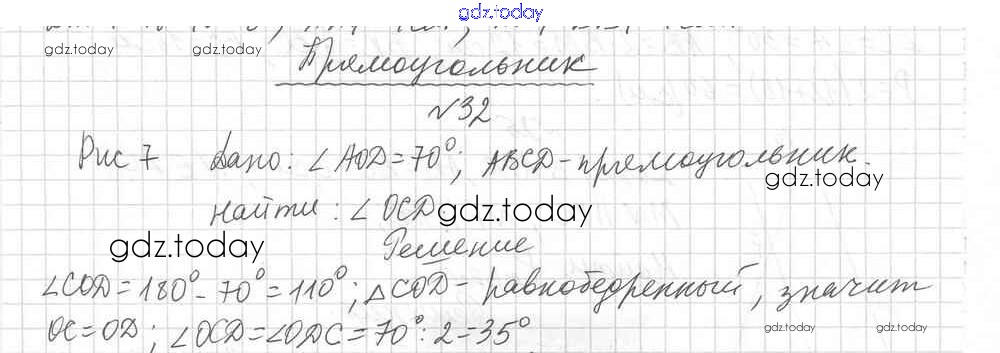 gdz.today
gdz.today gdz.today gdz.today
Прямоугольник
№32
Рис 7 Дано: ∠AOD=70°; ABCD-прямоугольник.
gdz.today
Найти: ∠OCD gdz.today
gdz.today Решение
∠COD=180°-70°=110°; △COD- равнобедренный, значит
OC=OD; ∠OCD=∠ODC=70°:2=35°
gdz.today gdz.today gdz.today gdz.today